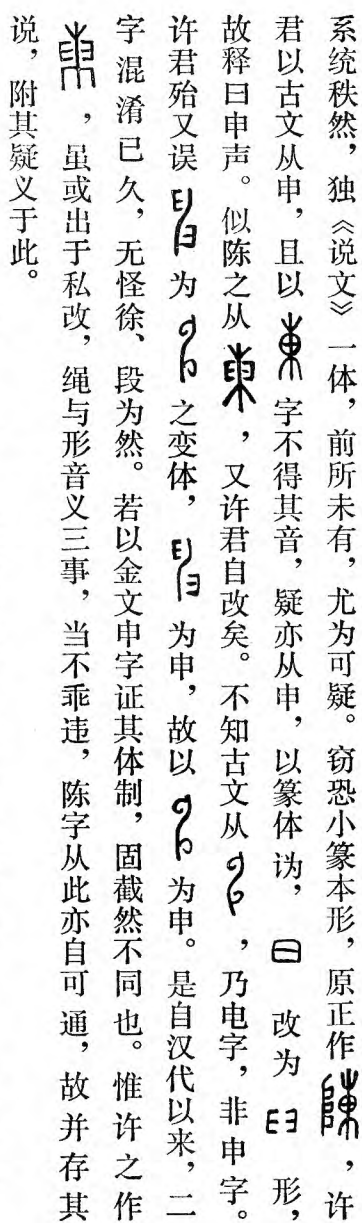 系统秩然，独《说文》一体，前所未有，尤为可疑。窃恐小篆本形，原正作，许
君以古文从申，且以字不得其音，疑亦从申，以篆体讹，改为形，
故释曰申声。似陈之从，又许君自改矣。不知古文从，乃电字，非申字。
许君殆又误为之变体，为申，故以为申。是自汉代以来，二
字混淆已久，无怪徐、段为然。若以金文申字证其体制，固截然不同也。惟许之作
，虽或出于私改，绳与形音义三事，当不乖违，陈字从此亦自可通，故并存其
说，附其疑义于此。